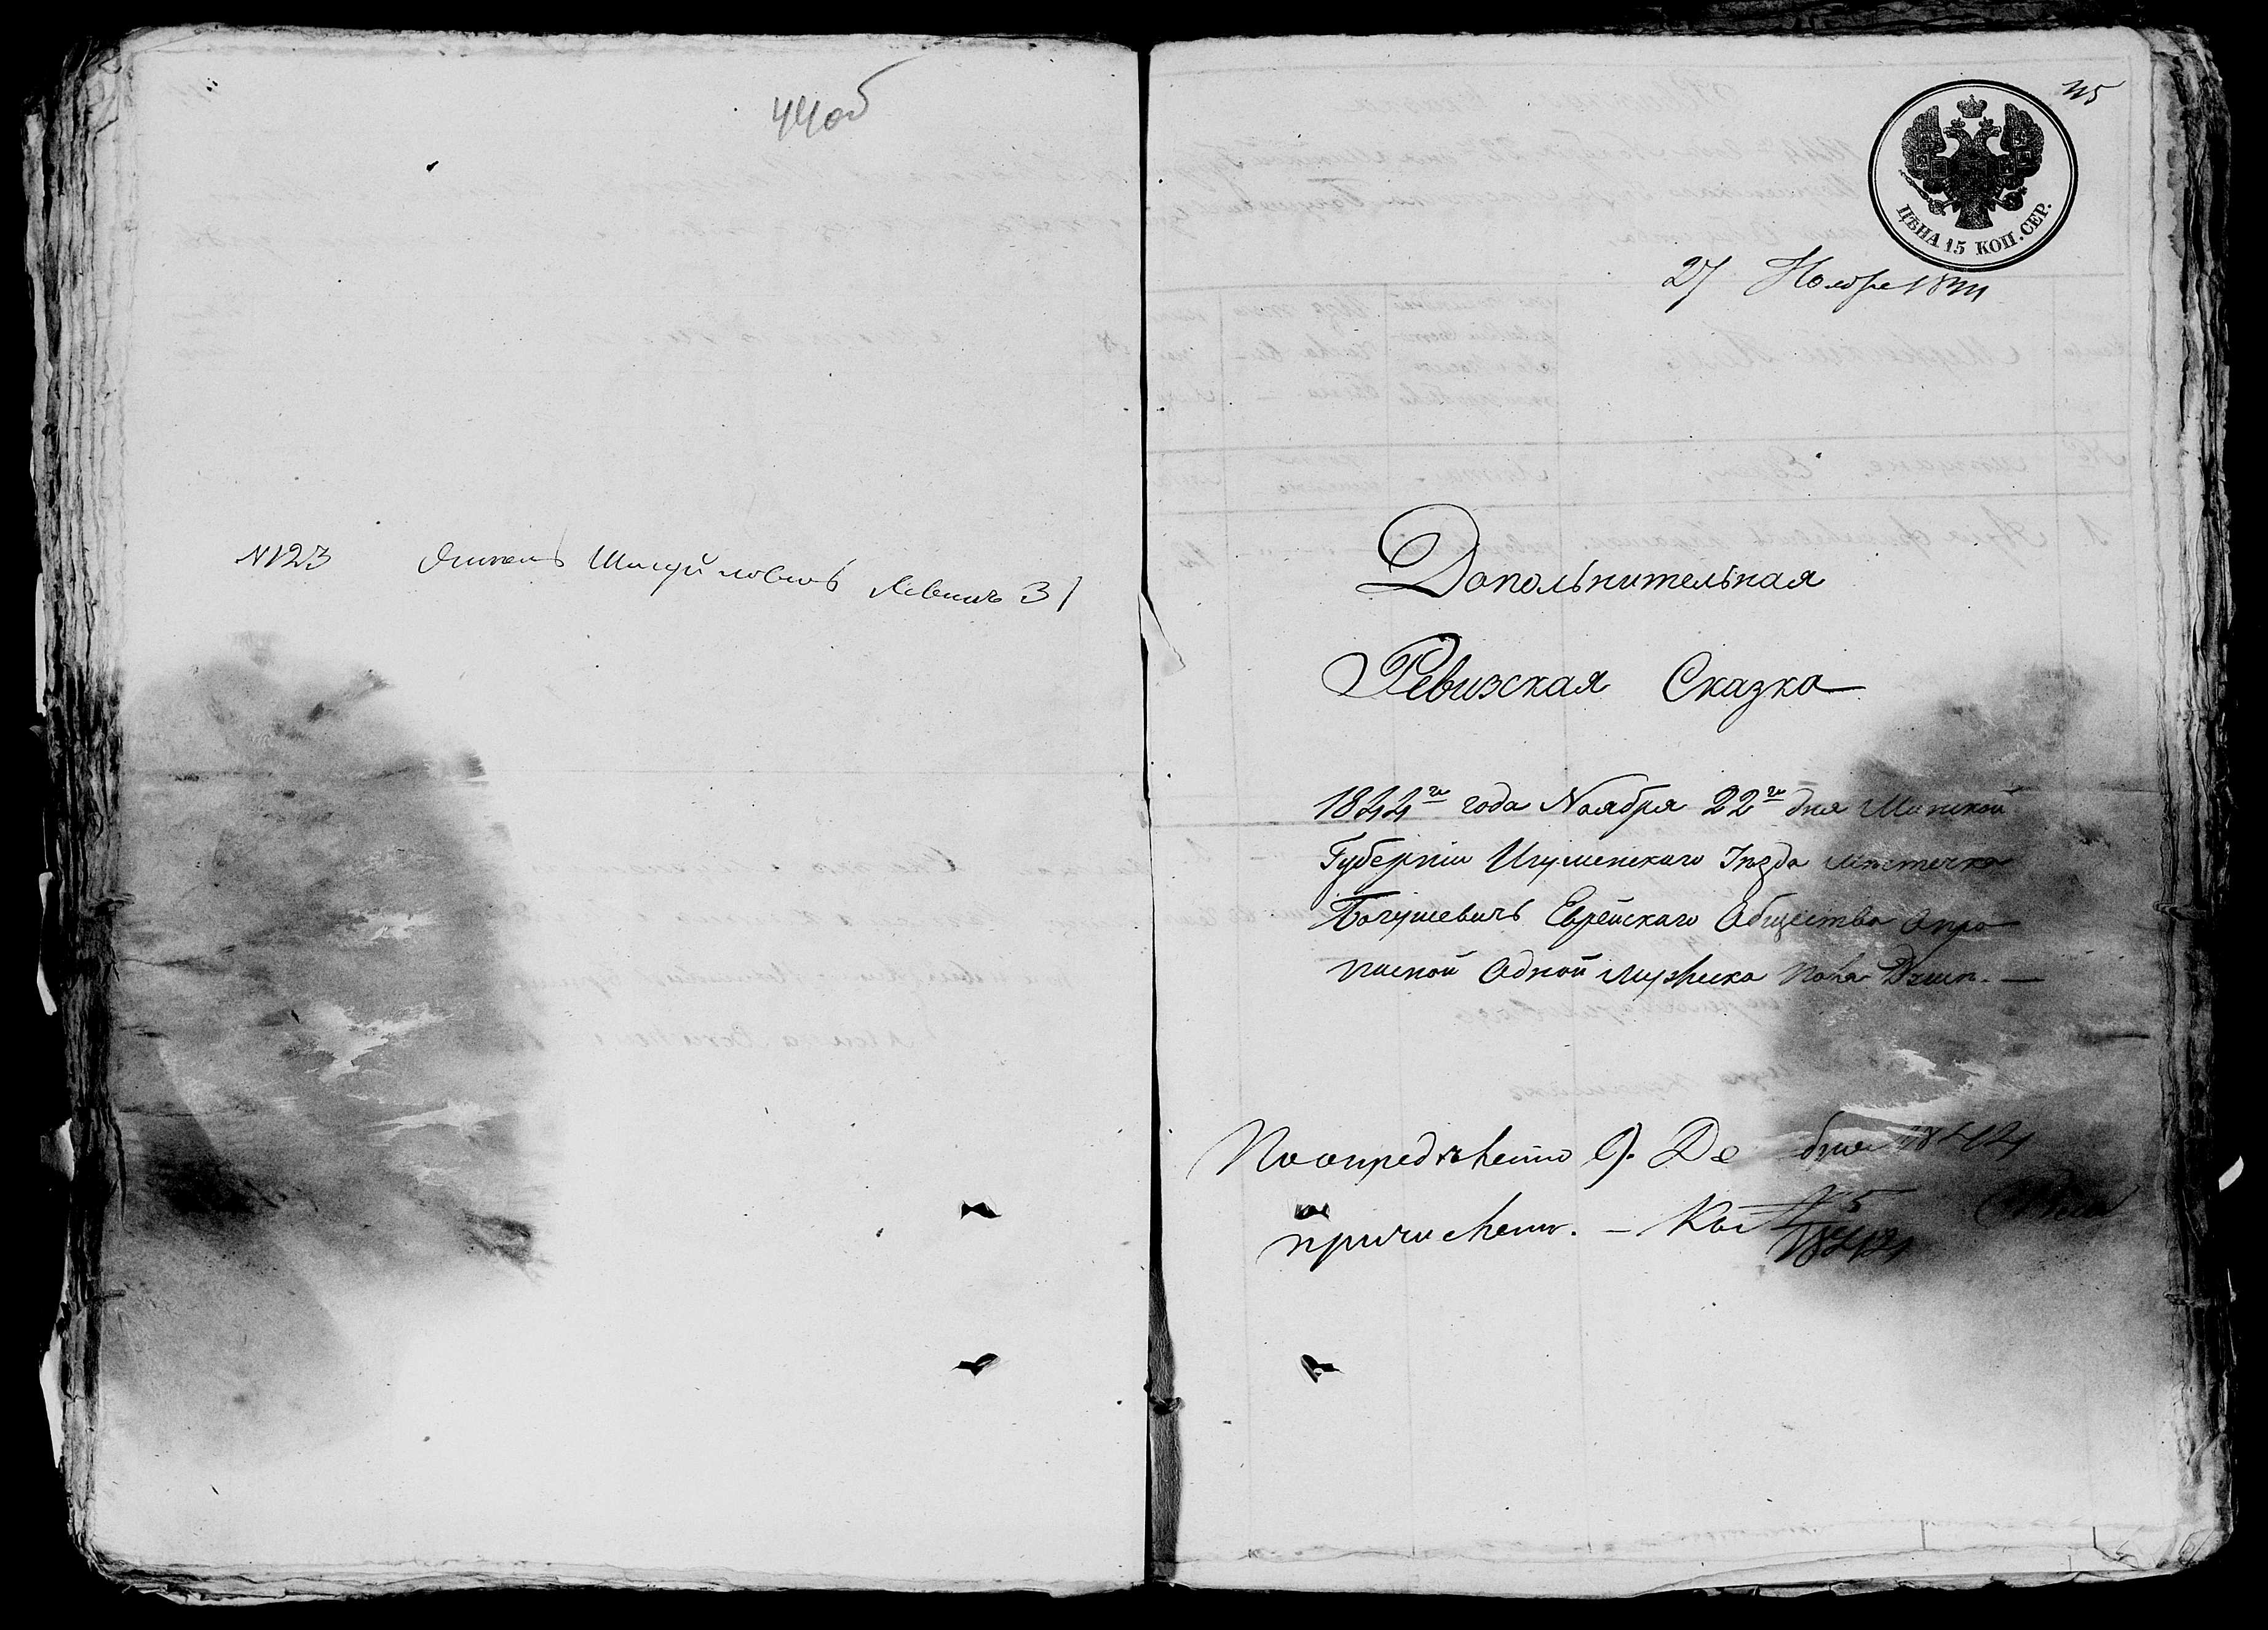 44об
№123 Шмуйловичъ Левинъ 31
45
ЦѢНА 15 КОП. СЕР.
27 Ноября 1844
Допольнительная
Ревизская Сказка
1844го года Ноября 22го дня Минской
Губерніи Игуменскаго Уѣзда мѣстечка
Богушевичъ Еврейскаго Общества о про
писной одной мужеска пола Души. —
По опредѣленію 9. Де бря 1844
причислен. —
1844